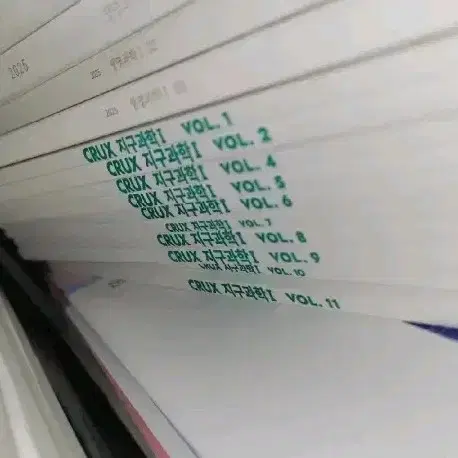 2025
2025 생명과학I
2025 생명과학I
CRUX 지구과학I VOL. 1
CRUX 지구과학I VOL. 2
CRUX 지구과학I VOL. 4
CRUX 지구과학I VOL. 5
CRUX 지구과학I VOL. 6
CRUX 지구과학I VOL. 7
CRUX 지구과학I VOL. 8
CRUX 지구과학I VOL. 9
CRUX 지구과학I VOL. 10
CRUX 지구과학I VOL. 11